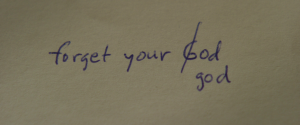 forget your God
god